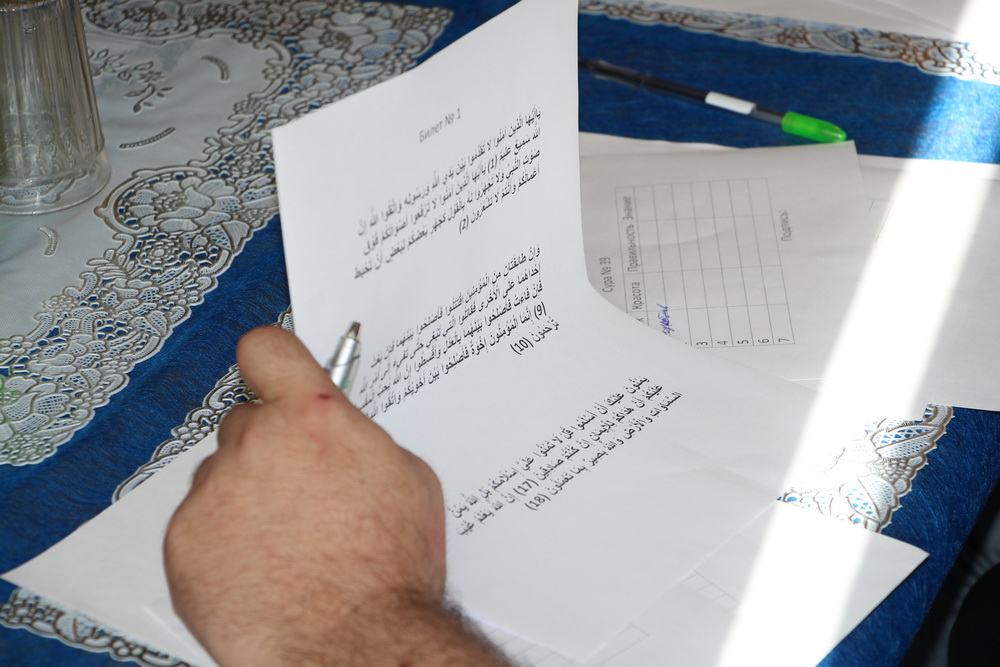 Билет № 1
ياأيها الذين آمنوا لا تقدموا بين يدي الله ورسوله واتقوا الله إن
الله سميع عليم (1) ياأيها الذين آمنوا لا ترفعوا أصواتكم فوق
صوت النبي ولا تجهروا له بالقول كجهر بعضكم لبعض أن تحبط
أعمالكم وأنتم لا تشعرون (2)
وإن طائفتان من المؤمنين اقتتلوا فأصلحوا بينهما فإن بغت
إحداهما على الأخرى فقاتلوا التي تبغي حتى تفيء إلى أمر الله
فإن فاءت فأصلحوا بينهما بالعدل وأقسطوا إن الله يحب
(9) إنما المؤمنون إخوة فأصلحوا بين أخويكم واتقوا الله
ترحمون (10)
يمنون عليك أن أسلموا قل لا تمنوا علي إسلامكم بل الله يمن
عليكم أن هداكم للإيمان إن كنتم صادقين (17) إن الله يعلم غيب
السماوات والأرض والله بصير بما تعملون (18)
Сура № 39
Красота Правильность Знание
3
4
5
6
7
Подпись: